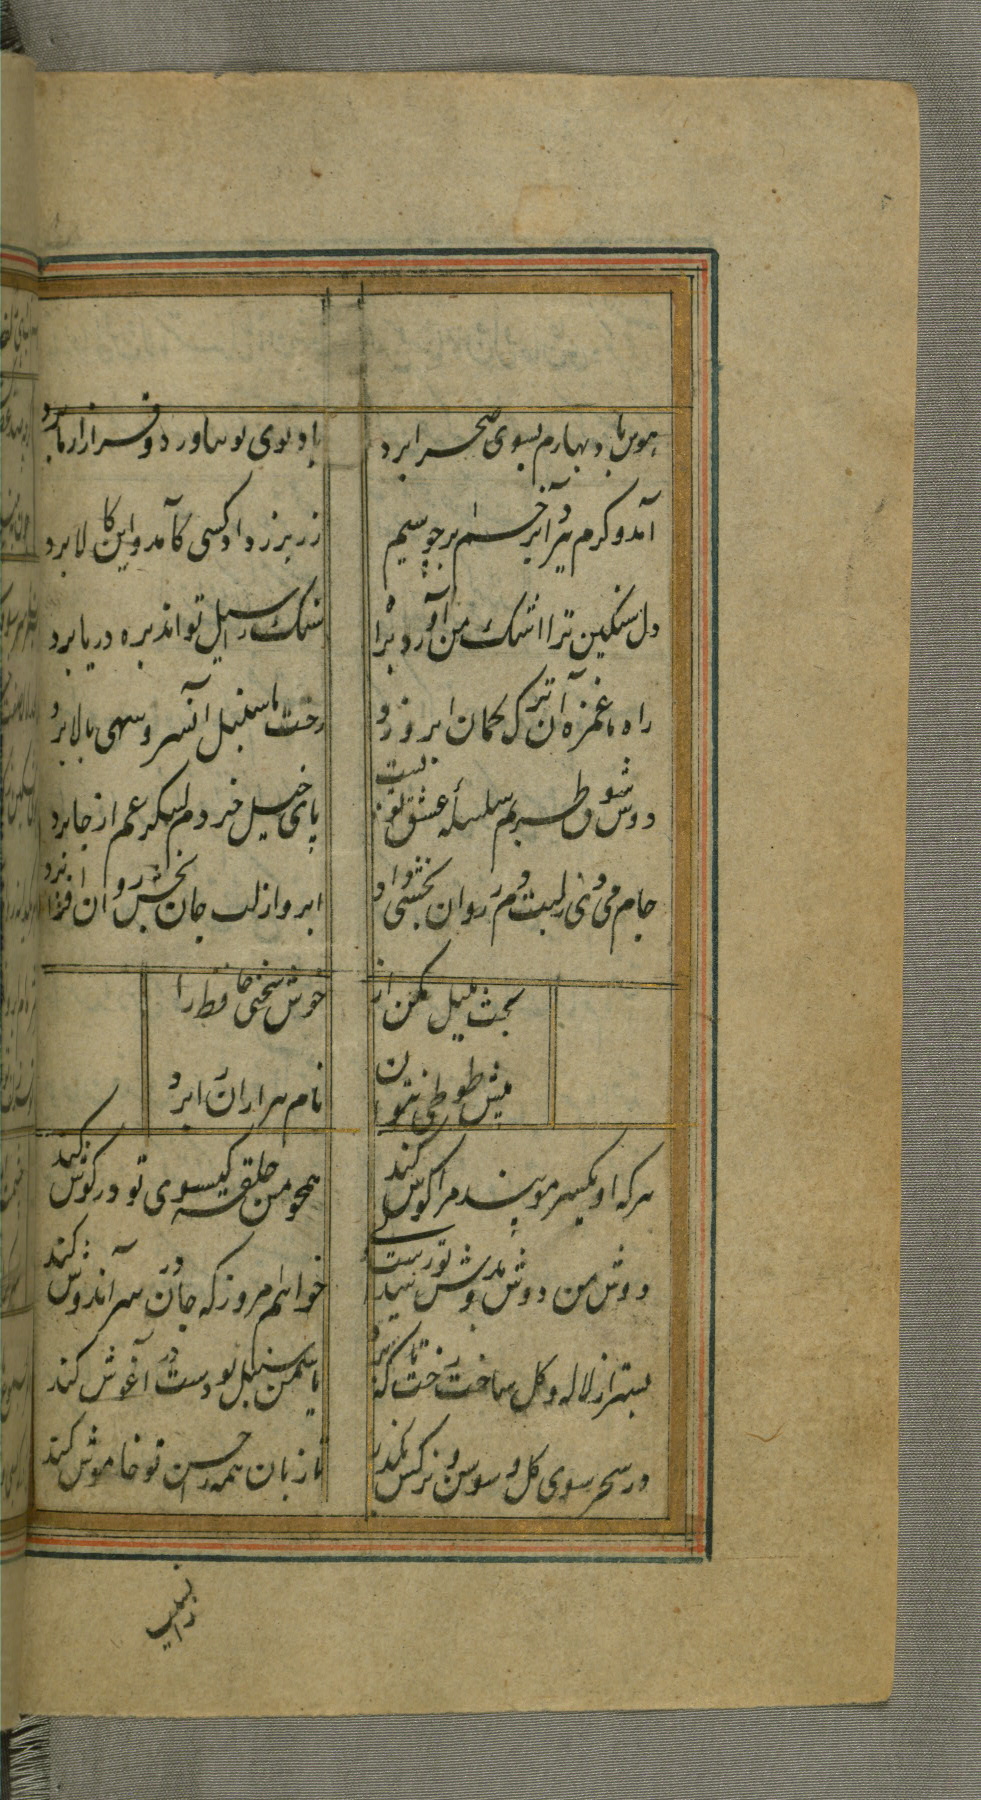 هوس باد بهارم بسوی صحرا برد
باد بوی تو بیاورد و قرار از ما برد
آمد و کرم ببرد آبرخم اشک چو سیم
زر بزر داد کسی کامد و این کالا برد
دل سنکین ترا اشک من آورد براه
سنک را سیل تواند بره دریا برد
راه ما غمزه آن ترک کمان ابرو زد
رخت ما سنبل آن سرو سهی بالا برد
دوش طربم سلسله عشق تو بست
پای خیل خردم لشکر غم از جا برد
جام می دی ز لبت دم ز روان بخشی زد
آبرو از لب جان بخش روان افزا برد
بحث بلبل مکن از
خوش سخنی حافظ را
پیش طوطی نتوان
نام هزاران را برد
هر که او یکسر مو پند مرا کوش کند
همچو من حلقه کیسوی تو در کوش کند
دوش من دوش بدوش تو رسید
خواهم امروز که جان در سر آن دوش کند
بستر از لاله و کل ساخت رخت تا که
یاسمن سنبل تو دست در آغوش کند
در سحر سوی کل و سوسن و نرکس بکذر
تا زبان همه را حسن تو خاموش کند